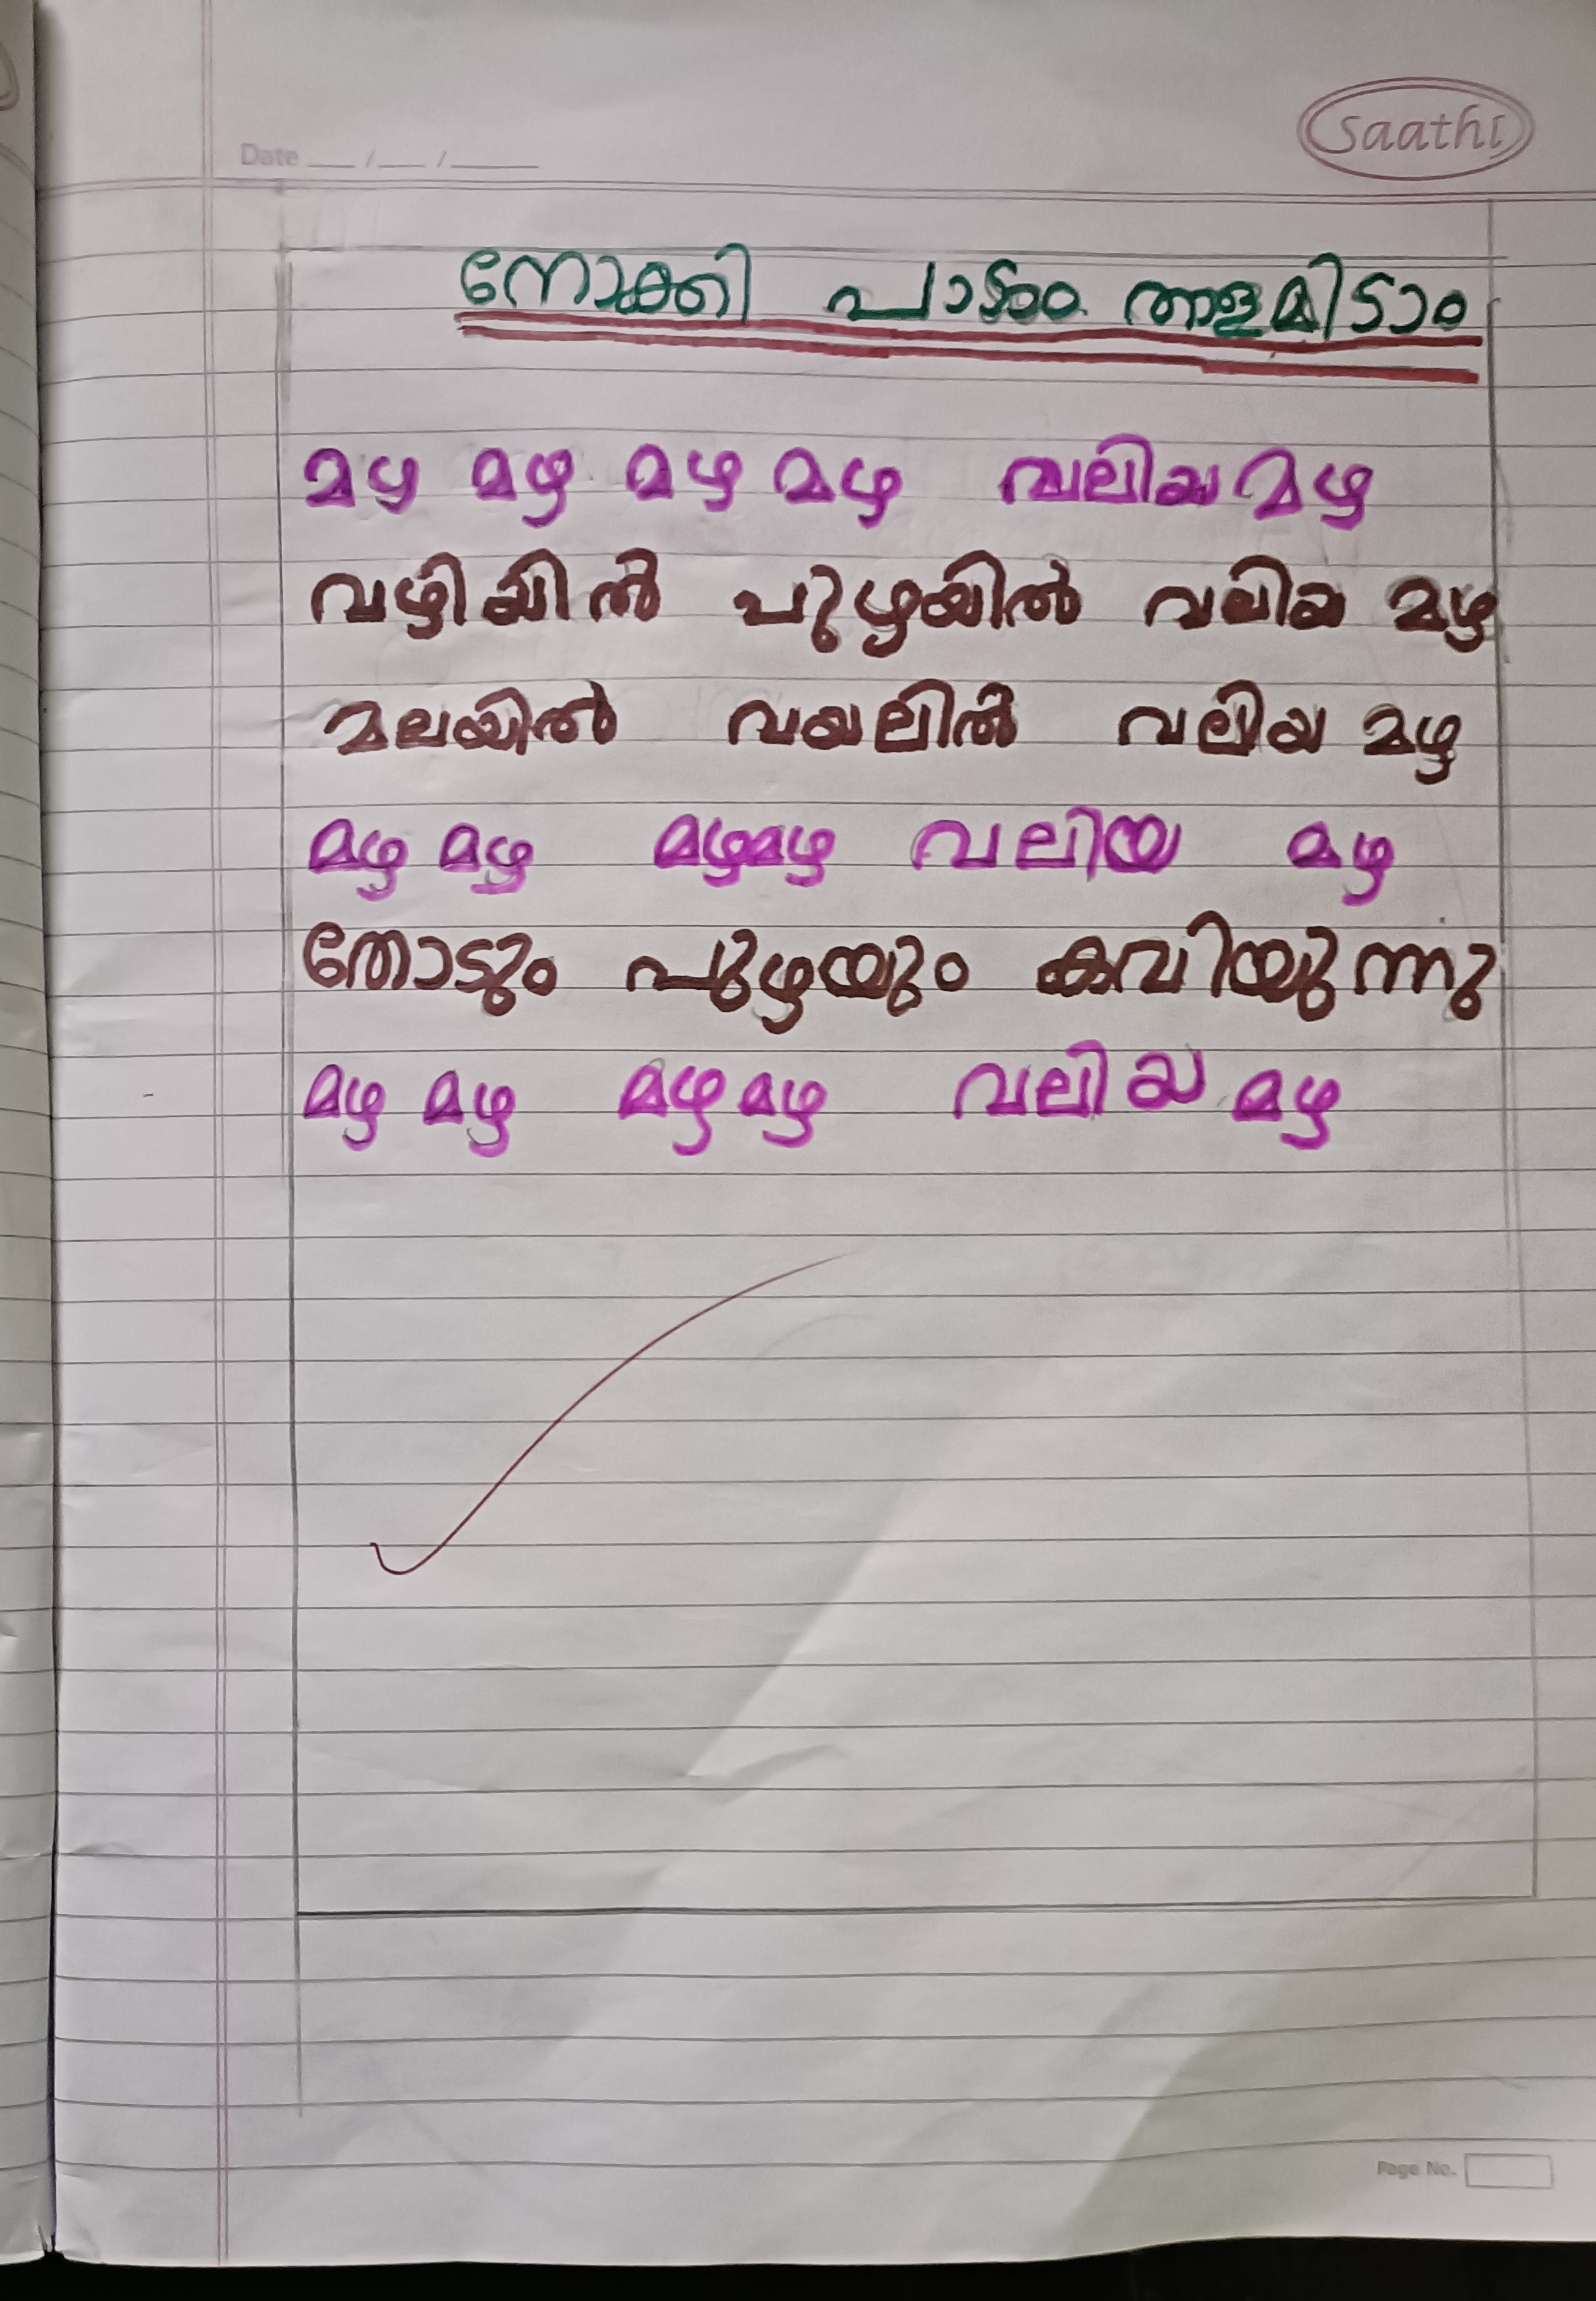 Date __/__/____
Saathi
നോക്കി പാടാം താളമിടാം
മഴ മഴ മഴ മഴ വലിയ മഴ
വഴിയിൽ പുഴയിൽ വലിയ മഴ
മലയിൽ വയലിൽ വലിയ മഴ
മഴ മഴ മഴമഴ വലിയ മഴ
തോടും പുഴയും കവിയുന്നു
മഴ മഴ മഴ മഴ വലിയ മഴ
Page No.